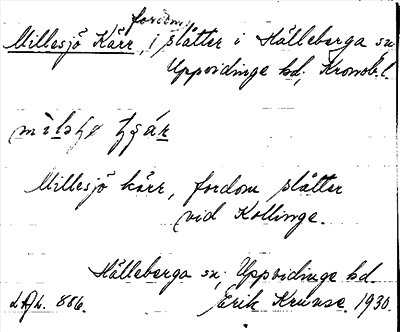 fordom
Millesjö Kärr, i slåtter i Hälleberga sn
Uppvidinge hd, Kronob. l.
Millesjö kärr, fordom slåtter
vid Kollinge.
Hälleberga sn, Uppvidinge hd.
Erik Kruuse. 1930.